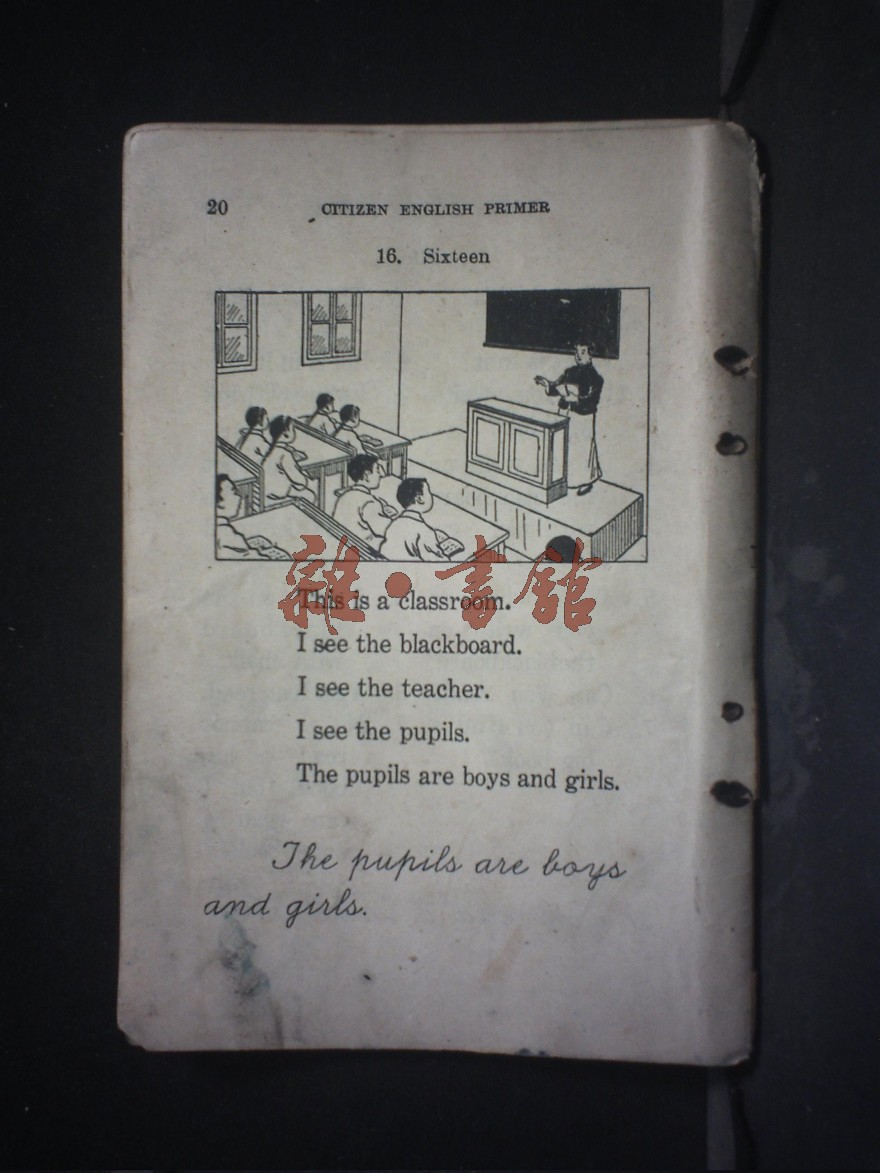 20 CITIZEN ENGLISH PRIMER
16. Sixteen
雜·書館
This is a classroom.
I see the blackboard.
I see the teacher.
I see the pupils.
The pupils are boys and girls.
The pupils are boys
and girls.